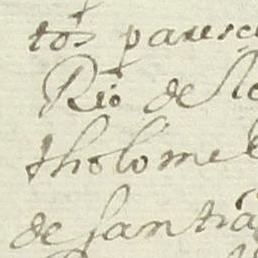 tos paresc
Rio de Ло
tholome
de santia